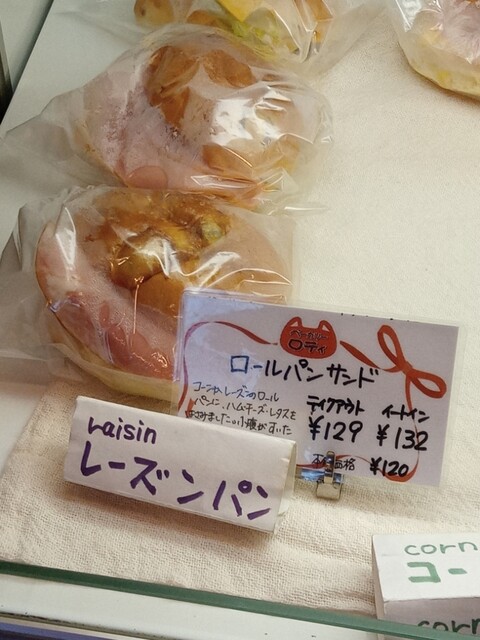 ベーカリー
ロティ
ロールパンサンド
コーンや、レーズンのロール
パンに、ハム・チーズ・レタスを
はさみました。小腹がすいた
テイクアウト イートイン
¥129 ¥132
本体価格 ¥120
raisin
レーズンパン
corn
コー
corn